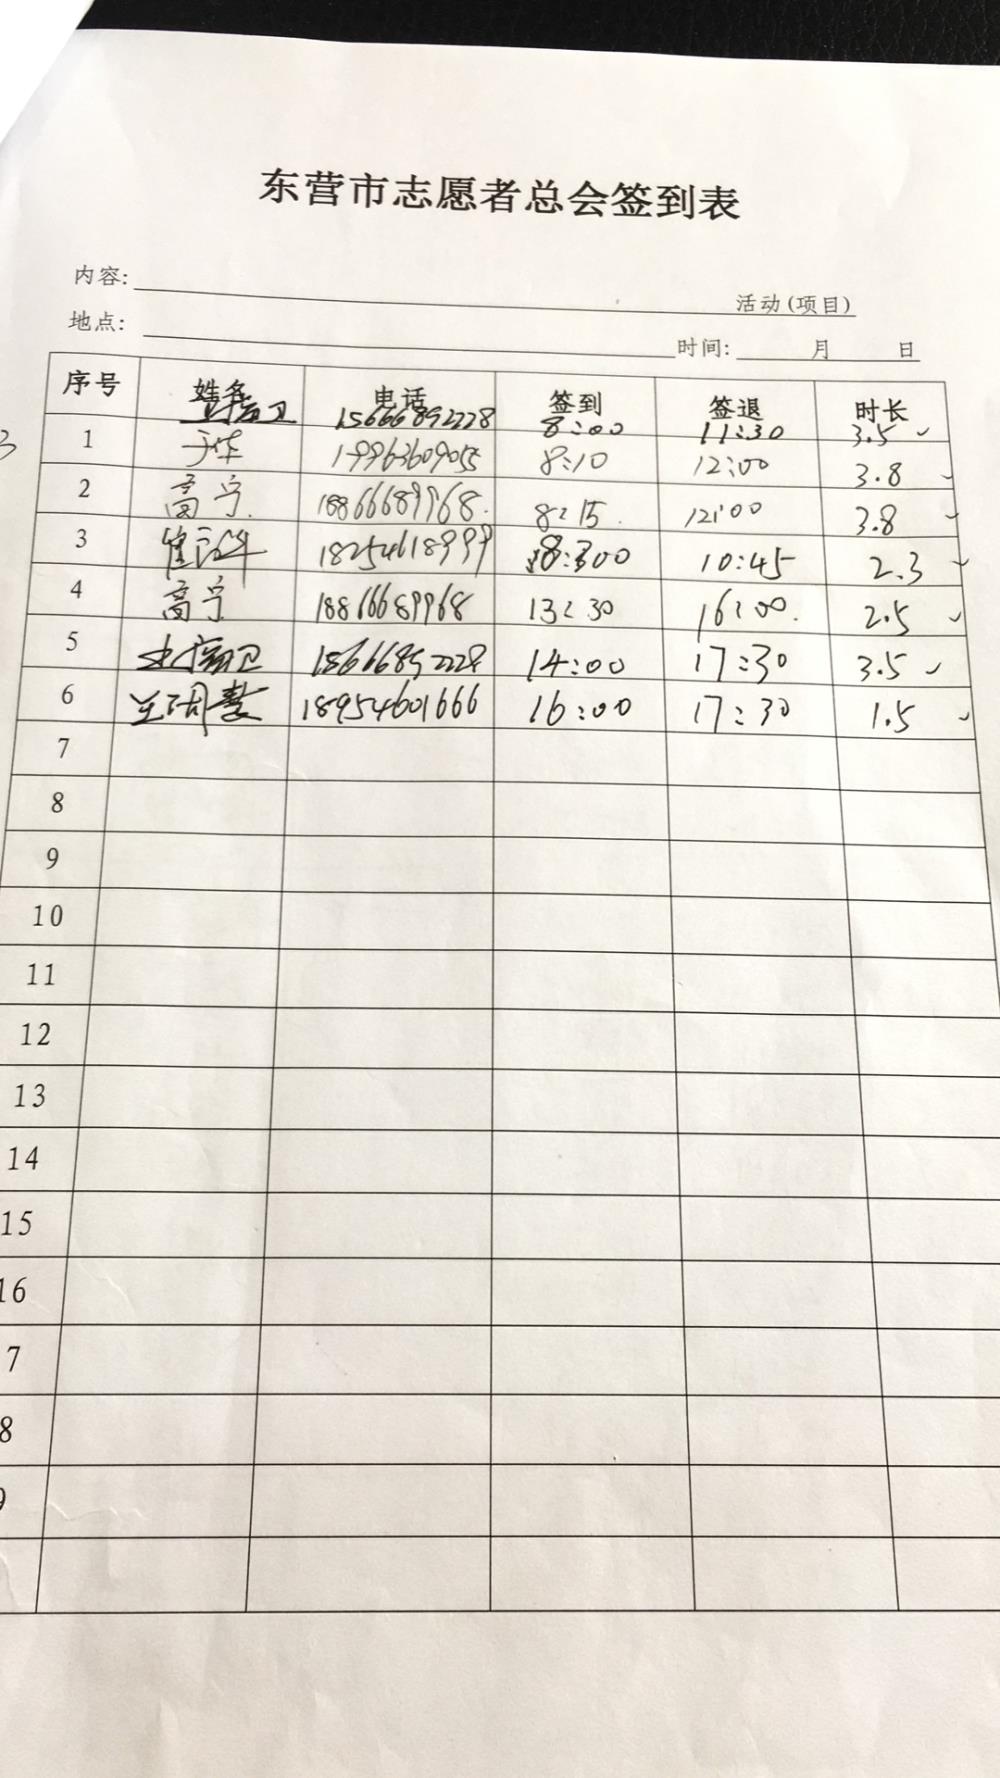 东营市志愿者总会签到表
内容: 活动(项目)
地点: 时间: 月 日
序号 姓名 电话 签到 签退 时长
15666892228 8:00 11:30 3.5 ✓
1 于华 19963609055 8:10 12:00 3.8 ✓
2 高宁 18866689968 8:15 12:00 3.8 ✓
3 18254618999 8:300 10:45 2.3 ✓
4 高宁 18866689968 13:30 16:00 2.5 ✓
5 15666892228 14:00 17:30 3.5 ✓
6 18954601666 16:00 17:30 1.5 ✓
7
8
9
10
11
12
13
14
15
16
7
8
9